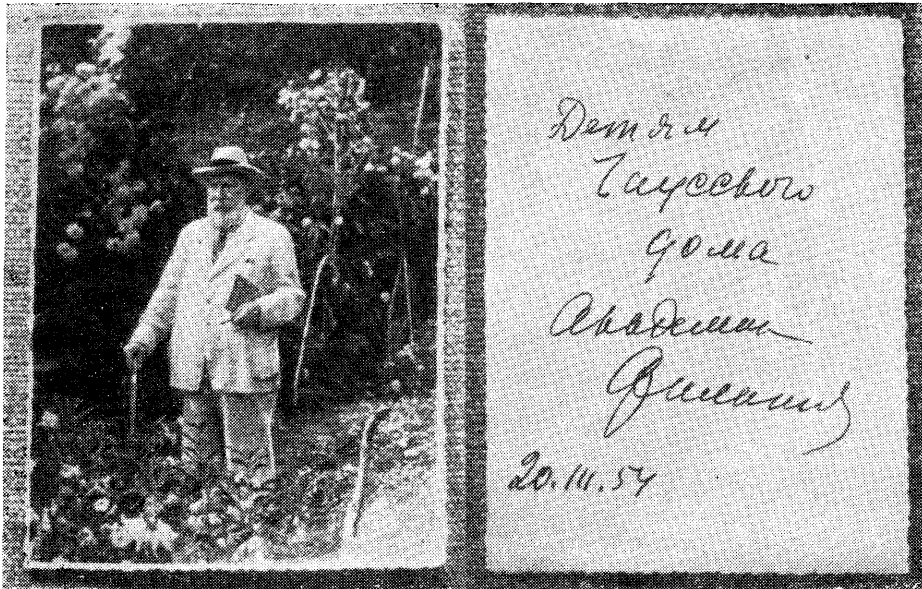 Детям
Чаусского
дома
Академик
Филатов
20.III.54